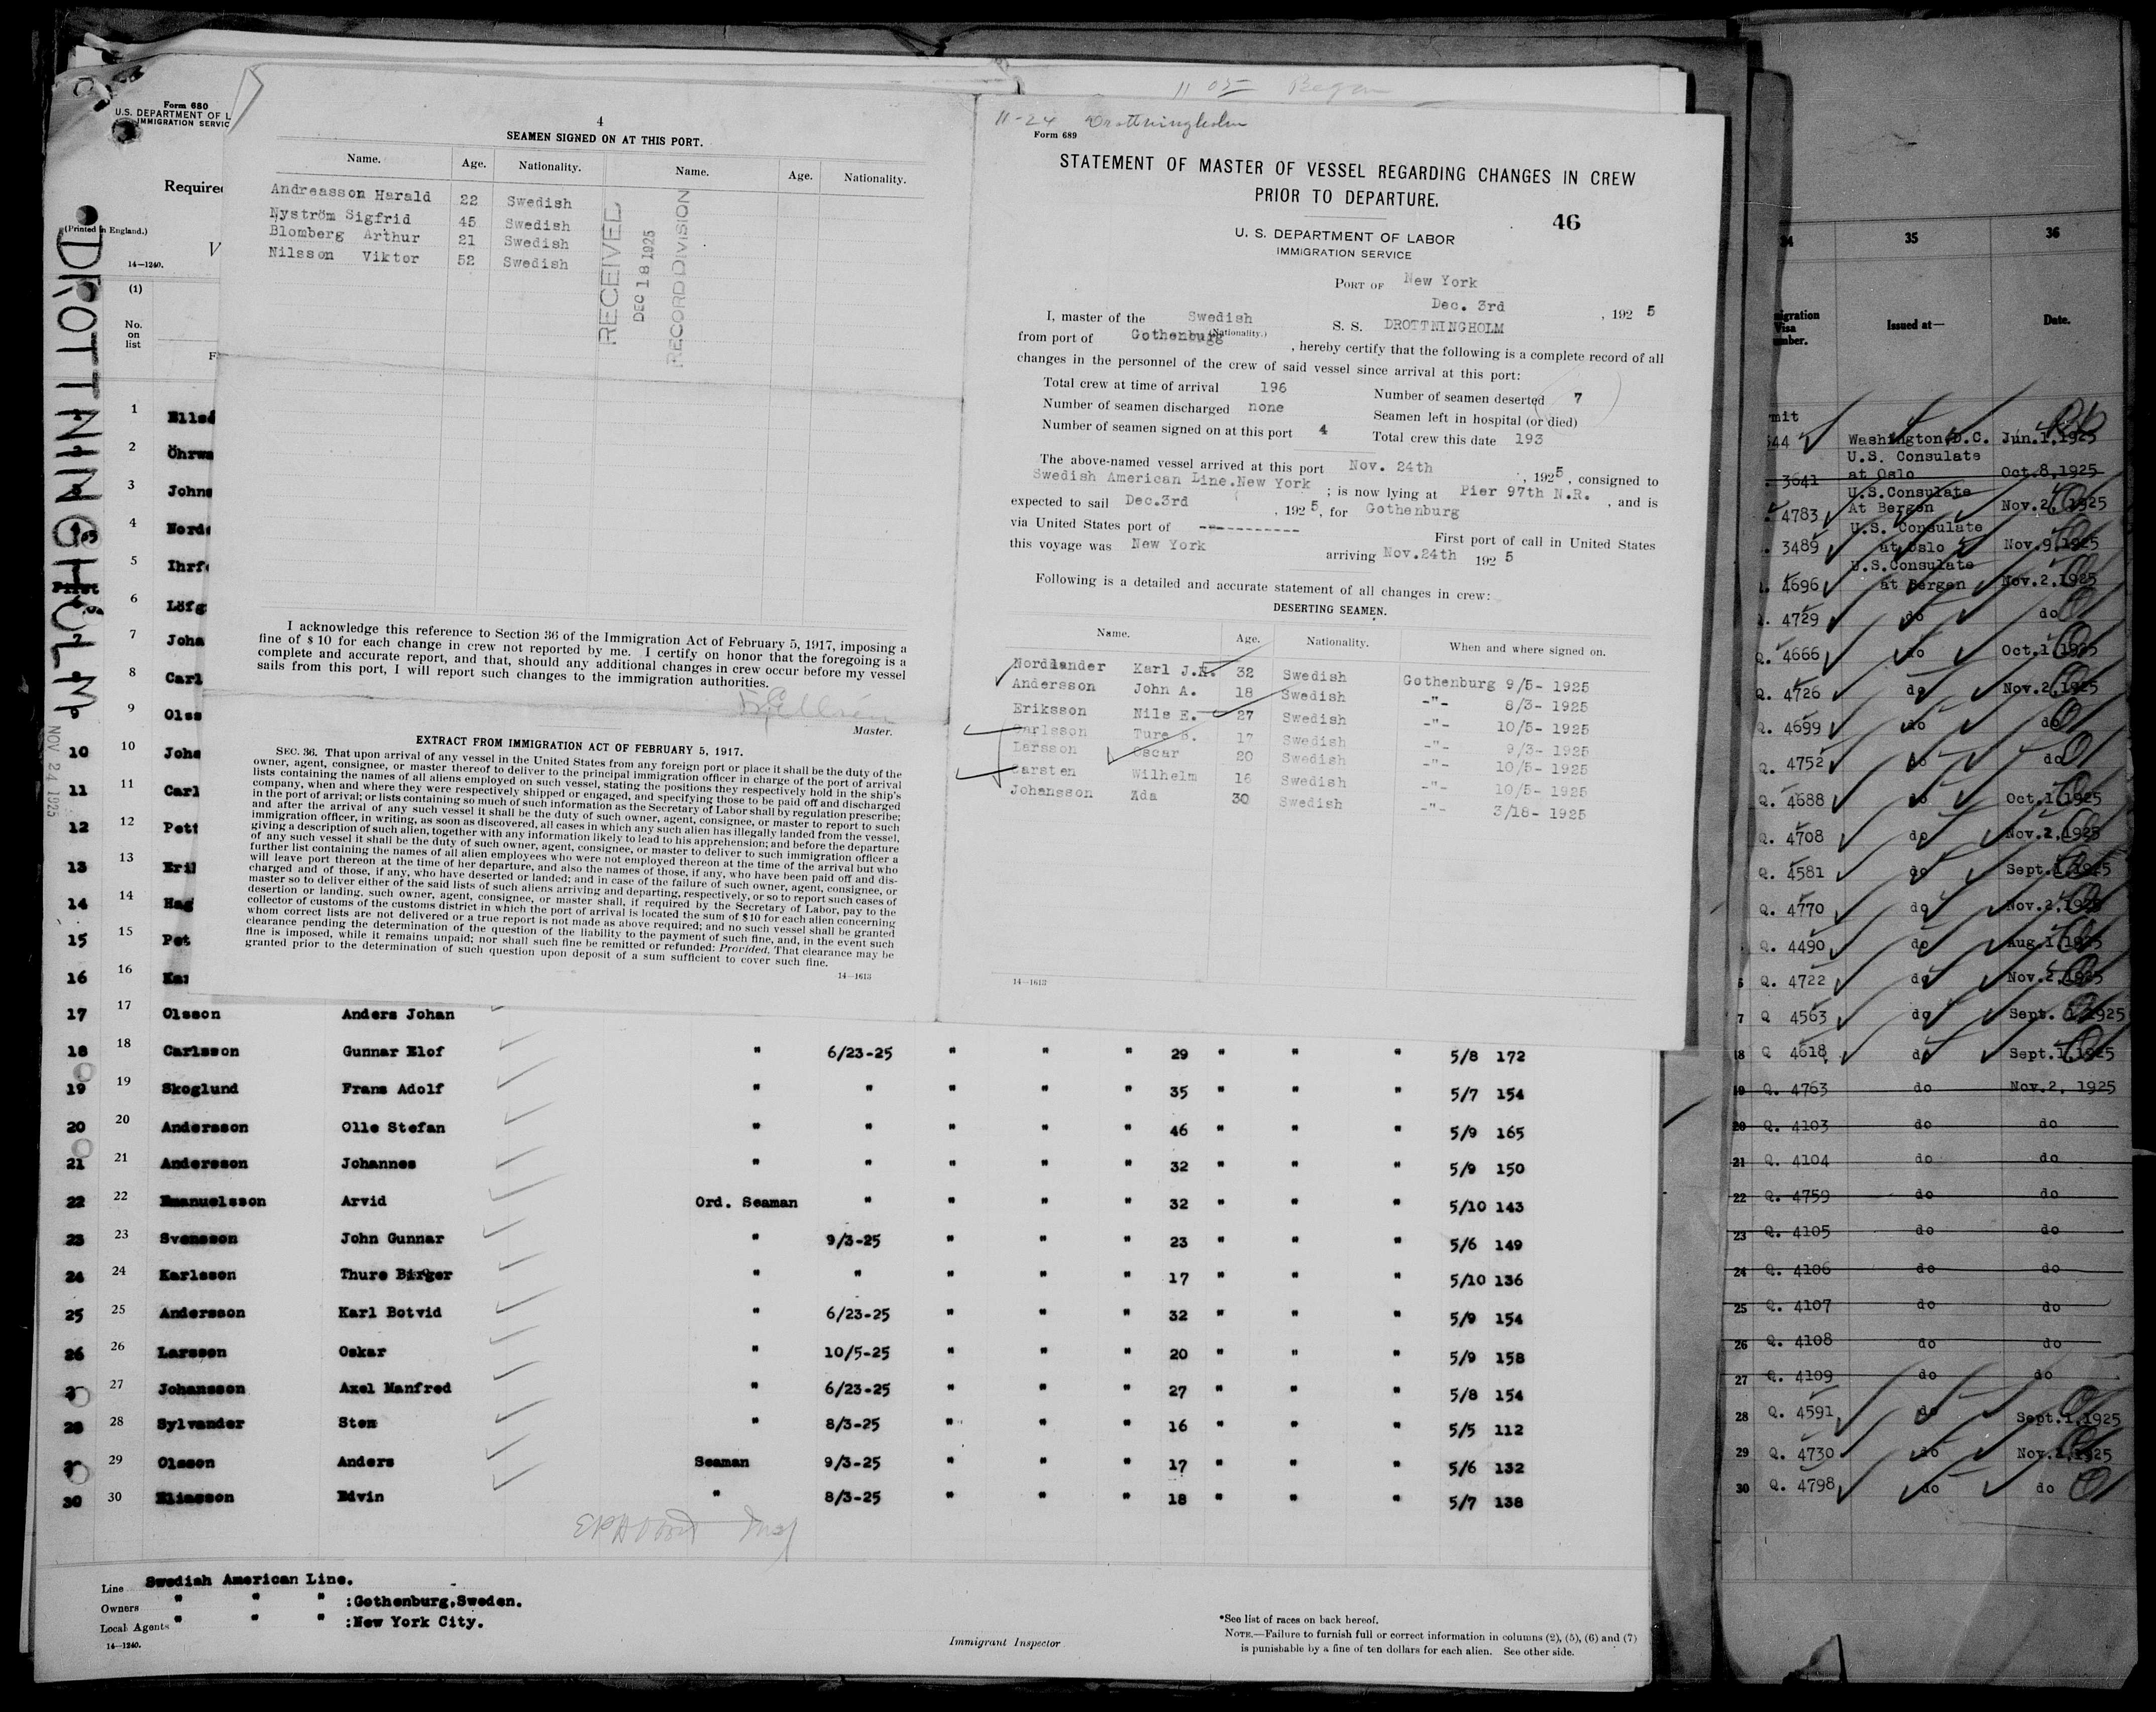 Form 680
U.S. DEPARTMENT OF L
IMMIGRATION SERVIC
Require
(Printed in England.)
V
14—1240.
(1)
No.
on
list
F
DROTTNINGHOLM
NOV 24 1925
4
SEAMEN SIGNED ON AT THIS PORT.
Name. Age. Nationality. Name. Age. Nationality.
Andreasson Harald 22 Swedish
Nyström Sigfrid 45 Swedish
Blomberg Arthur 21 Swedish
Nilsson Viktor 52 Swedish
RECEIVED
DEC 18 1925
RECORD DIVISION
I acknowledge this reference to Section 36 of the Immigration Act of February 5, 1917, imposing a
fine of $10 for each change in crew not reported by me. I certify on honor that the foregoing is a
complete and accurate report, and that, should any additional changes in crew occur before my vessel
sails from this port, I will report such changes to the immigration authorities.
Master.
EXTRACT FROM IMMIGRATION ACT OF FEBRUARY 5, 1917.
SEC. 36. That upon arrival of any vessel in the United States from any foreign port or place it shall be the duty of the
owner, agent, consignee, or master thereof to deliver to the principal immigration officer in charge of the port of arrival
lists containing the names of all aliens employed on such vessel, stating the positions they respectively hold in the ship's
company, when and where they were respectively shipped or engaged, and specifying those to be paid off and discharged
in the port of arrival; or lists containing so much of such information as the Secretary of Labor shall by regulation prescribe;
and after the arrival of any such vessel it shall be the duty of such owner, agent, consignee, or master to report to such
immigration officer, in writing, as soon as discovered, all cases in which any such alien has illegally landed from the vessel,
giving a description of such alien, together with any information likely to lead to his apprehension; and before the departure
of any such vessel it shall be the duty of such owner, agent, consignee, or master to deliver to such immigration officer a
further list containing the names of all alien employees who were not employed thereon at the time of the arrival but who
will leave port thereon at the time of her departure, and also the names of those, if any, who have been paid off and dis-
charged and of those, if any, who have deserted or landed; and in case of the failure of such owner, agent, consignee, or
master so to deliver either of the said lists of such aliens arriving and departing, respectively, or so to report such cases of
desertion or landing, such owner, agent, consignee, or master shall, if required by the Secretary of Labor, pay to the
collector of customs of the customs district in which the port of arrival is located the sum of $10 for each alien concerning
whom correct lists are not delivered or a true report is not made as above required; and no such vessel shall be granted
clearance pending the determination of the question of the liability to the payment of such fine, and, in the event such
fine is imposed, while it remains unpaid; nor shall such fine be remitted or refunded: Provided, That clearance may be
granted prior to the determination of such question upon deposit of a sum sufficient to cover such fine.
14—1613
11 05 Began
11-24 Drottningholm
Form 689
STATEMENT OF MASTER OF VESSEL REGARDING CHANGES IN CREW
PRIOR TO DEPARTURE.
46
U. S. DEPARTMENT OF LABOR
IMMIGRATION SERVICE
PORT OF New York
Dec. 3rd , 192 5
I, master of the Swedish S. S. DROTTNINGHOLM
(Nationality.)
from port of Gothenburg , hereby certify that the following is a complete record of all
changes in the personnel of the crew of said vessel since arrival at this port:
Total crew at time of arrival 196 Number of seamen deserted 7
Number of seamen discharged none Seamen left in hospital (or died)
Number of seamen signed on at this port 4 Total crew this date 193
The above-named vessel arrived at this port Nov. 24th , 1925, consigned to
Swedish American Line.New York ; is now lying at Pier 97th N.R. , and is
expected to sail Dec.3rd , 192 5, for Gothenburg
via United States port of ----------- First port of call in United States
this voyage was New York arriving Nov.24th 192 5
Following is a detailed and accurate statement of all changes in crew:
DESERTING SEAMEN.
Name. Age. Nationality. When and where signed on.
Nordlander Karl J.H. 32 Swedish Gothenburg 9/5- 1925
Andersson John A. 18 Swedish -"- 8/3- 1925
Eriksson Nils E. 27 Swedish -"- 10/5- 1925
Carlsson Ture B. 17 Swedish -"- 9/3- 1925
Larsson Oscar 20 Swedish -"- 10/5- 1925
Carsten Wilhelm 16 Swedish -"- 10/5- 1925
Johansson Ada 30 Swedish -"- 3/18- 1925
14—1613
1 1
2 2 Öhrwa
3 3 Johns
4 4 Norde
5 5 Ihrfe
6 6 Löfg
7 7 Joha
8 8 Carl
9 9 Olss
10 10 Joha
11 11 Carl
12 12 Pett
13 13 Eril
14 14 Hag
15 15 Pet
16 16 Kar
17 17 Olsson Anders Johan
18 18 Carlsson Gunnar Elof " 6/23-25 " " " 29 " " " 5/8 172
19 19 Skoglund Frans Adolf " " " " " 35 " " " 5/7 154
20 20 Andersson Olle Stefan " " " " " 46 " " " 5/9 165
21 21 Andersson Johannes " " " " " 32 " " " 5/9 150
22 22 Emanuelsson Arvid Ord. Seaman " " " " 32 " " " 5/10 143
23 23 Svensson John Gunnar " 9/3-25 " " " 23 " " " 5/6 149
24 24 Karlsson Thure Birger " " " " " 17 " " " 5/10 136
25 25 Andersson Karl Botvid " 6/23-25 " " " 32 " " " 5/9 154
26 26 Larsson Oskar " 10/5-25 " " " 20 " " " 5/9 158
27 Johansson Axel Manfred " 6/23-25 " " " 27 " " " 5/8 154
28 28 Sylvander Sten " 8/3-25 " " " 16 " " " 5/5 112
29 Olsson Anders Seaman 9/3-25 " " " 17 " " " 5/6 132
30 30 Eliasson Edvin " 8/3-25 " " " 18 " " " 5/7 138
Line Swedish American Line.
Owners " " " :Gothenburg,Sweden.
Local Agents " " " :New York City.
14—1240.
Immigrant Inspector
*See list of races on back hereof.
NOTE.—Failure to furnish full or correct information in columns (2), (5), (6) and (7)
is punishable by a fine of ten dollars for each alien. See other side.
34 35 36
migration
Visa
mber. Issued at— Date.
mit
544 Washington,D.C. Jun.1,1925
3641 U.S. Consulate at Oslo Oct.8,1925
4783 U.S.Consulate At Bergen Nov.2,1925
3489 U.S. Consulate at Oslo Nov.9,1925
4696 U.S.Consulate at Bergen Nov.2,1925
4729 do do
Q. 4666 do Oct.1,1925
Q. 4726 do Nov.2,1925
Q. 4699 do do
Q. 4752 do do
Q. 4688 do Oct.1,1925
Q. 4708 do Nov.2,1925
Q. 4581 do Sept.1,1925
Q. 4770 do Nov.2,1925
Q. 4490 do Aug.1,1925
6 Q. 4722 do Nov.2,1925
7 Q 4563 do Sept. 1,1925
18 Q 4618 do Sept.1,1925
19 Q. 4763 do Nov.2, 1925
20 Q. 4103 do do
21 Q. 4104 do do
22 Q. 4759 do do
23 Q. 4105 do do
24 Q. 4106 do do
25 Q. 4107 do do
26 Q. 4108 do do
27 Q. 4109 do do
28 Q. 4591 do Sept.1,1925
29 Q. 4730 do Nov.2,1925
30 Q. 4798 do do